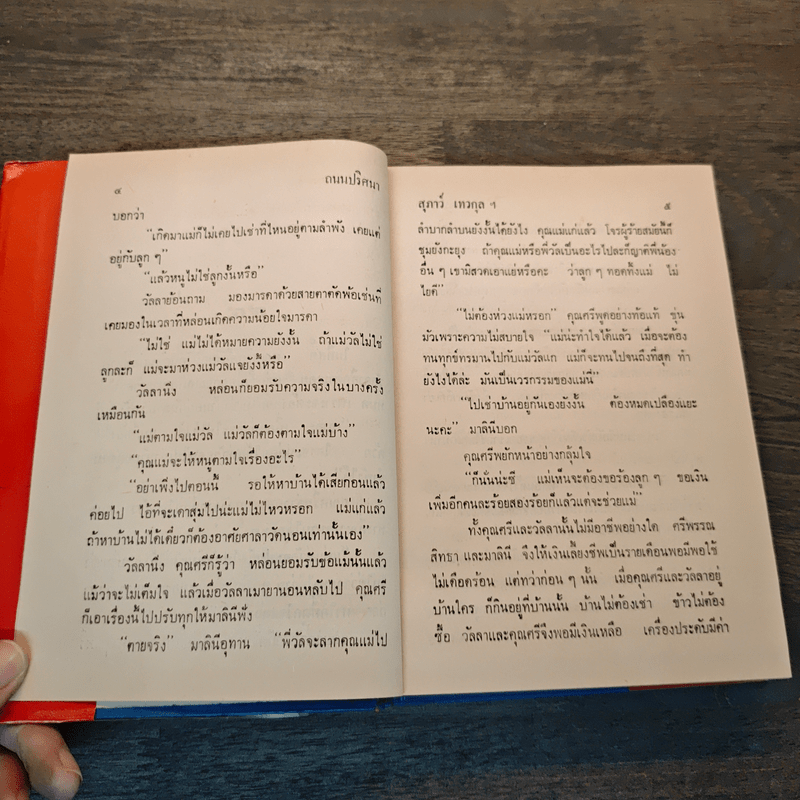 ๔ ถนนปริศนา
บอกว่า
"เกิดมาแม่ก็ไม่เคยไปเช่าที่ไหนอยู่ตามลำพัง เคยแต่
อยู่กับลูก ๆ"
"แล้วหนูไม่ใช่ลูกงั้นหรือ"
วัลลาย้อนถาม มองมารดาด้วยสายตาตัดพ้อเช่นที่
เคยมองในเวลาที่หล่อนเกิดความน้อยใจมารดา
"ไม่ใช่ แม่ไม่ได้หมายความยังงั้น ถ้าแม่วัลไม่ใช่
ลูกละก็ แม่จะมาห่วงแม่วัลแจยังงี้หรือ"
วัลลานิ่ง หล่อนก็ยอมรับความจริงในบางครั้ง
เหมือนกัน
"แม่ตามใจแม่วัล แม่วัลก็ต้องตามใจแม่บ้าง"
"คุณแม่จะให้หนูตามใจเรื่องอะไร"
"อย่าเพิ่งไปตอนนี้ รอให้หาบ้านได้เสียก่อนแล้ว
ค่อยไป ไอ้ที่จะเดาสุ่มไปน่ะแม่ไม่ไหวหรอก แม่แก่แล้ว
ถ้าหาบ้านไม่ได้เดี๋ยวก็ต้องอาศัยศาลาวัดนอนเท่านั้นเอง"
วัลลานิ่ง คุณศรีก็รู้ว่า หล่อนยอมรับข้อแม้นั้นแล้ว
แม้ว่าจะไม่เต็มใจ แล้วเมื่อวัลลาเมายานอนหลับไป คุณศรี
ก็เอาเรื่องนี้ไปปรับทุกข์ให้มาลินีฟัง
"ตายจริง" มาลินีอุทาน "พี่วัลจะลากคุณแม่ไป
สุภาว์ เทวกุล ฯ ๕
ลำบากลำบนยังงั้นได้ยังไง คุณแม่แก่แล้ว โจรผู้ร้ายสมัยนี้ก็
ชุมยังกะยุง ถ้าคุณแม่หรือพี่วัลเป็นอะไรไปละก็ญาติพี่น้อง
อื่น ๆ เขามิสวดเอาแย่หรือคะ ว่าลูก ๆ ทอดทิ้งแม่ ไม่
ไยดี"
"ไม่ต้องห่วงแม่หรอก" คุณศรีพูดอย่างท้อแท้ ขุ่น
มัวเพราะความไม่สบายใจ "แม่น่ะทำใจได้แล้ว เมื่อจะต้อง
ทนทุกข์ทรมานไปกับแม่วัลแก แม่ก็จะทนไปจนถึงที่สุด ทำ
ยังไงได้ล่ะ มันเป็นเวรกรรมของแม่นี่"
"ไปเช่าบ้านอยู่กันเองยังงั้น ต้องหมดเปลืองแยะ
นะคะ" มาลินีบอก
คุณศรีพยักหน้าอย่างกลุ้มใจ
"ก็นั่นน่ะซี แม่เห็นจะต้องขอร้องลูก ๆ ขอเงิน
เพิ่มอีกคนละร้อยสองร้อยก็แล้วแต่จะช่วยแม่"
ทั้งคุณศรีและวัลลานั้นไม่มีอาชีพอย่างใด ศรีพรรณ
สิทธา และมาลินี จึงให้เงินเลี้ยงชีพเป็นรายเดือนพอมีพอใช้
ไม่เดือดร้อน แต่ทว่าก่อน ๆ นั้น เมื่อคุณศรีและวัลลาอยู่
บ้านใคร ก็กินอยู่ที่บ้านนั้น บ้านไม่ต้องเช่า ข้าวไม่ต้อง
ซื้อ วัลลาและคุณศรีจึงพอมีเงินเหลือ เครื่องประดับมีค่า